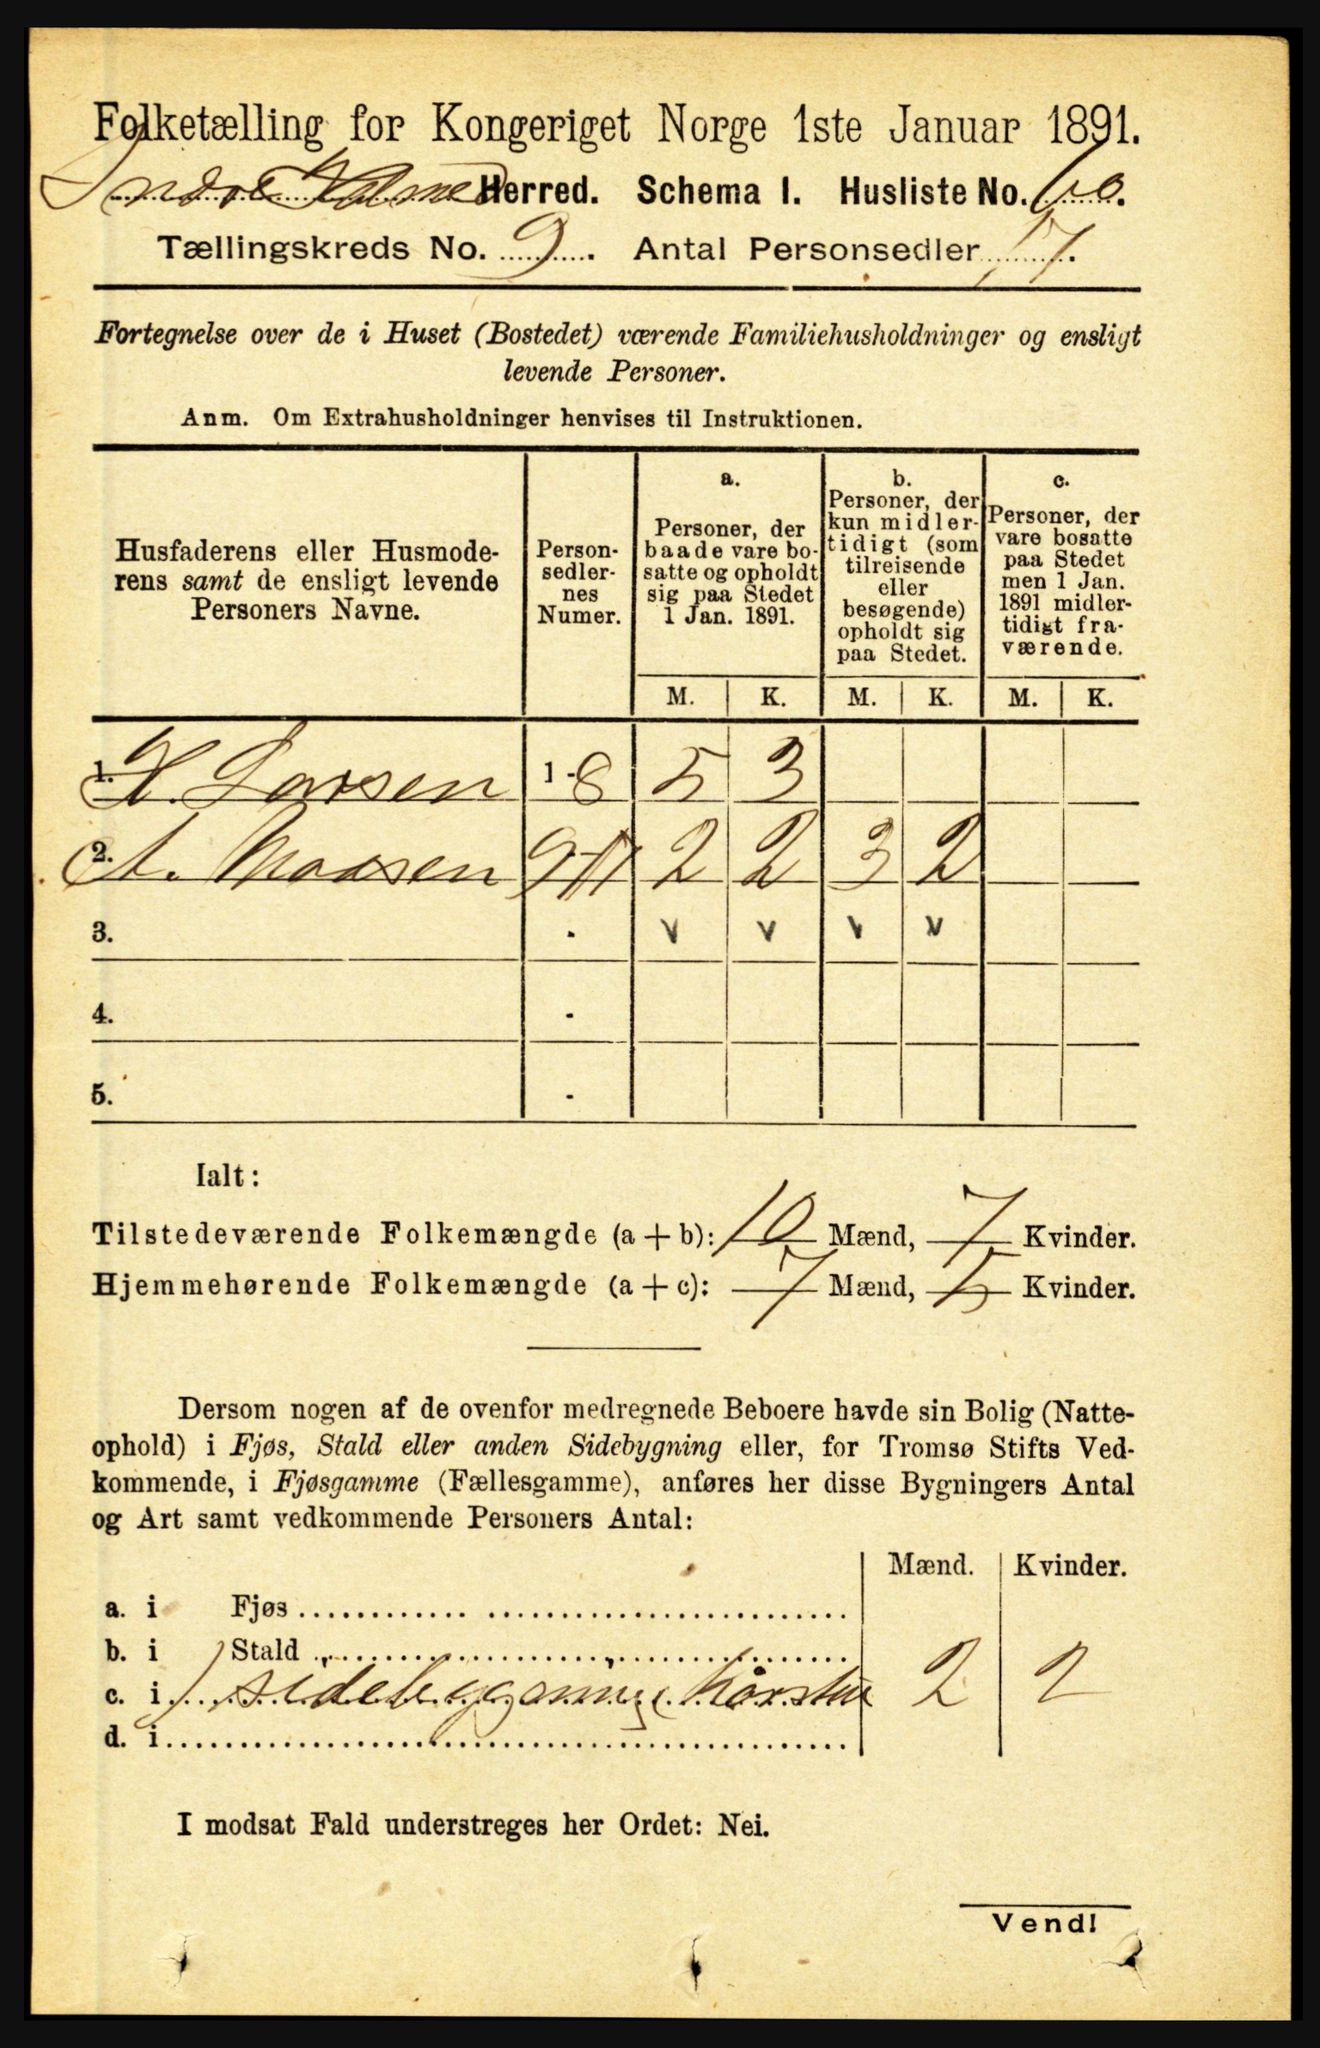 Folketælling for Kongeriget Norge 1ste Januar 1891.
Indre Holmedal Herred. Schema I. Husliste No. 60.
Tællingskreds No. 9. Antal Personsedler 17.
Fortegnelse over de i Huset (Bostedet) værende Familiehusholdninger og ensligt
levende Personer.
Anm. Om Extrahusholdninger henvises til Instruktionen.
Husfaderens eller Husmode-
rens samt de ensligt levende
Personers Navne.
Person-
sedler-
nes
Numer.
a.
Personer, der
baade vare bo-
satte og opholdt
sig paa Stedet
1 Jan. 1891.
b.
Personer, der
kun midler-
tidigt (som
tilreisende
eller
besøgende)
opholdt sig
paa Stedet.
c.
Personer, der
vare bosatte
paa Stedet
men 1 Jan.
1891 midler-
tidigt fra-
værende.
M. K. M. K. M. K.
1. H. Larsen 1-8 5 3
2. A. Madsen 9-17 2 2 3 2
3. - v v v v
4. -
5. -
Ialt:
Tilstedeværende Folkemængde (a + b): 10 Mænd, 7 Kvinder.
Hjemmehørende Folkemængde (a + c): 7 Mænd, 5 Kvinder.
Dersom nogen af de ovenfor medregnede Beboere havde sin Bolig (Natte-
ophold) i Fjøs, Stald eller anden Sidebygning eller, for Tromsø Stifts Ved-
kommende, i Fjøsgamme (Fællesgamme), anføres her disse Bygningers Antal
og Art samt vedkommende Personers Antal:
Mænd. Kvinder.
a. i Fjøs
b. i Stald
c. i 1 sidebygning 2 2
d. i
I modsat Fald understreges her Ordet: Nei.
Vend!